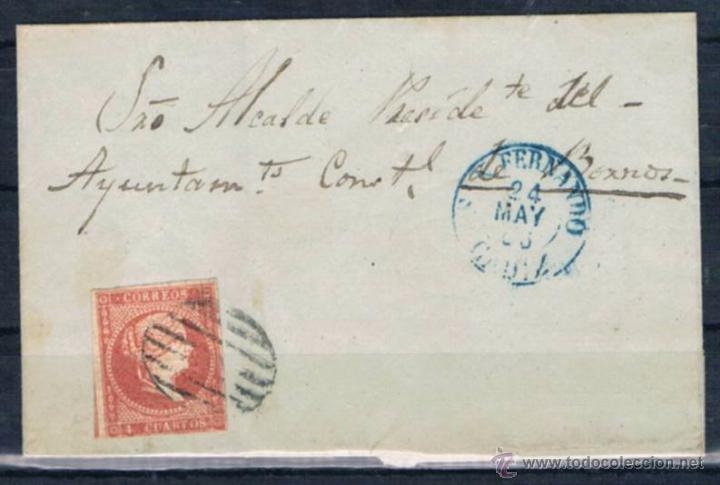 Sno Alcalde Preside.te del
Ayuntam.to Const.l de Bornos
S. FERNANDO
24
MAY
CADIZ
CORREOS
4 CUARTOS
www.todocoleccion.net